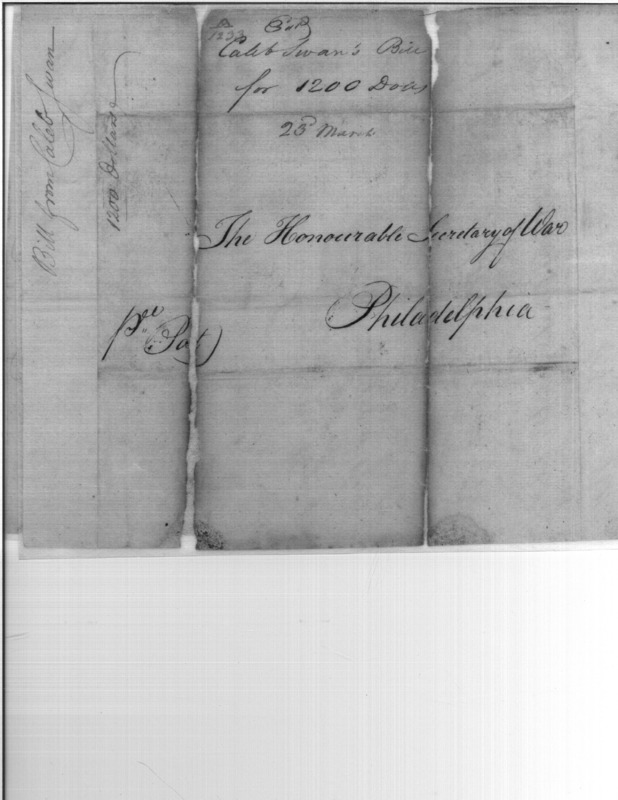 Caleb Swan's Bill
for 1200 Dolls
23d March
The Honourable Secretary of War
Philadelphia
pr Post
Bill from Caleb Swan
1200 Dollars